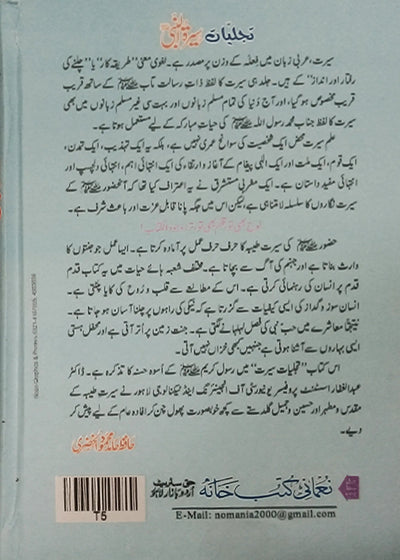 تجلیات سیرۃ النبیؐ
سیرت، عربی زبان میں فِعلۃ کے وزن پر مصدر ہے۔ لغوی معنی "طریقہ کار" یا "چلنے کی
رفتار اور انداز" کے ہیں۔ جلد ہی سیرت کا لفظ ذات رسالت مآب ﷺ کے ساتھ قریب
قریب مخصوص ہو گیا، اور آج دنیا کی تمام مسلم زبانوں اور بہت سی غیر مسلم زبانوں میں بھی
سیرت کا لفظ جناب محمد رسول اللہ ﷺ کی حیات مبارکہ کے لیے مستعمل ہوتا ہے۔
علم سیرت محض ایک شخصیت کی سوانح عمری نہیں ہے، بلکہ یہ ایک تہذیب، ایک تمدن،
ایک قوم، ایک ملت اور ایک الٰہی پیغام کے آغاز و ارتقاء کی ایک انتہائی اہم، انتہائی دلچسپ اور
انتہائی مفید داستان ہے۔ ایک مغربی مستشرق نے یہ اعتراف کیا تھا کہ آنحضور ﷺ کے
سیرت نگاروں کا سلسلہ لامتناہی ہے، لیکن اس میں جگہ پانا قابل عزت اور باعث شرف ہے۔
لوح بھی تو قلم بھی تو، تیرا وجود الکتاب!
حضور ﷺ کی سیرت طیبہ کا حرف حرف عمل پر آمادہ کرتا ہے۔ ایسا عمل جو جنتوں کا
وارث بناتا ہے اور جہنم کی آگ سے بچاتا ہے۔ مختلف شعبہ ہائے حیات میں یہ کتاب قدم
قدم پر انسان کی رہنمائی کرتی ہے۔ اس کے مطالعے سے قلب و روح کی کایا پلٹتی ہے۔
انسان سوز و گداز کی ایسی کیفیات سے گزرتا ہے کہ نیکی کی راہوں پر چلنا آسان ہو جاتا ہے۔
نتیجتاً معاشرے میں حب نبی کی فصل لہلہانے لگتی ہے۔ جنت زمین پر اتر آتی ہے اور محفل ہستی
ایسی بہاروں سے آشنا ہوتی ہے جنہیں کبھی خزاں نہیں آتی۔
اس کتاب "تجلیات سیرت" میں رسول کریم ﷺ کے اسوہ حسنہ کا تذکرہ ہے۔ ڈاکٹر
عبدالغفار اسسٹنٹ پروفیسر یونیورسٹی آف انجینئرنگ اینڈ ٹیکنالوجی لاہور نے سیرت طیبہ کے
مقدس و مطہر اور حسین و جمیل گلدستے سے کچھ خوبصورت پھول چن کر افادہ عام کے لیے پیش کر
دیے۔
حافظ حامد محمود الخضری
نعمانی کتب خانہ
حق سٹریٹ
اردو بازار لاہور
E-Mail: nomania2000@gmail.com
T5